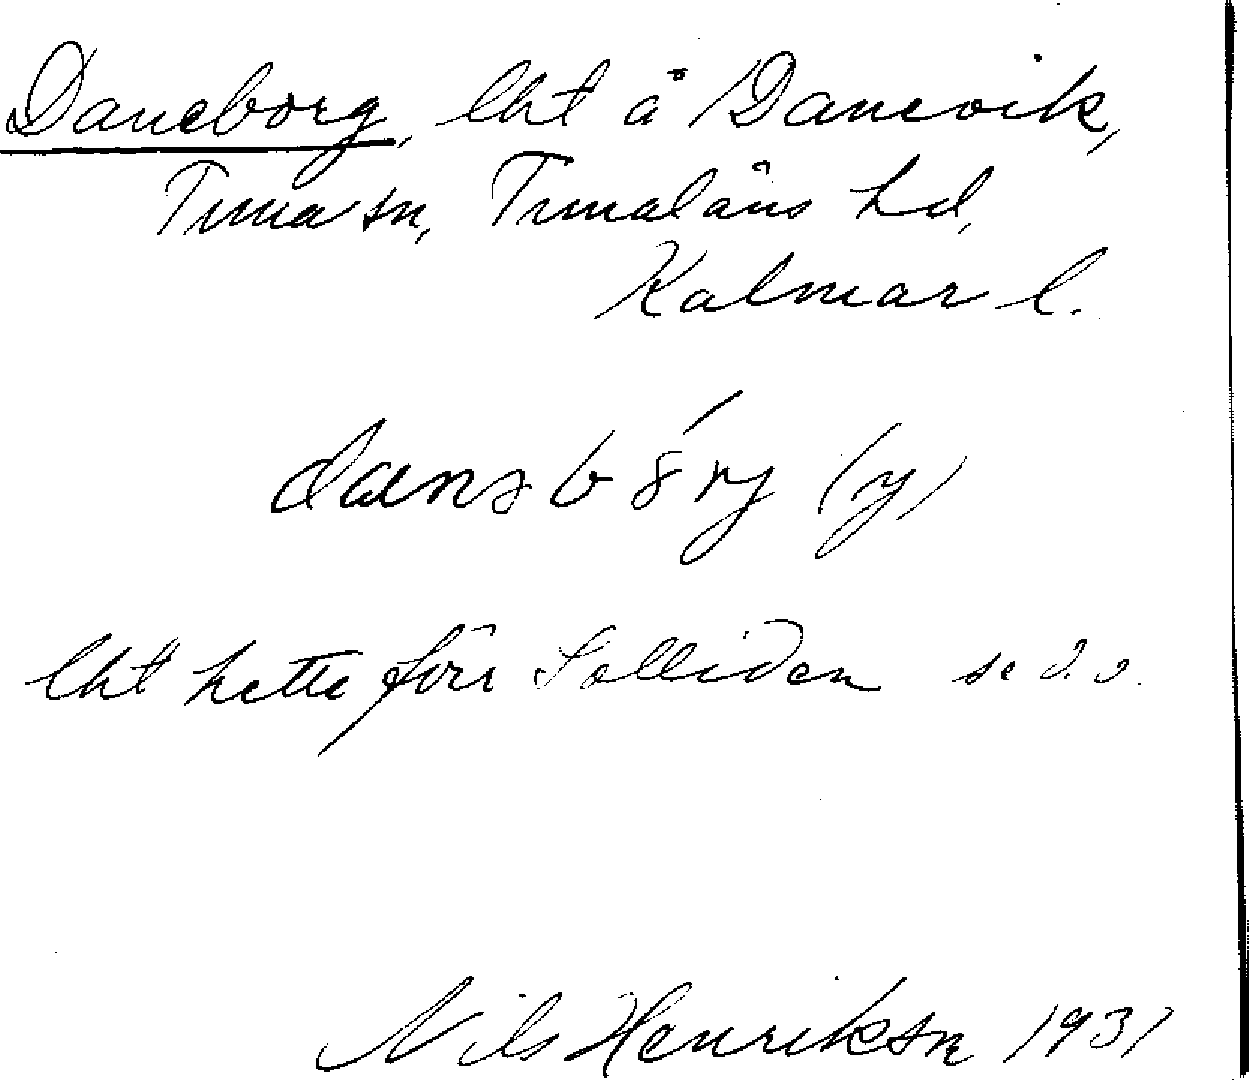 Daneborg, lht å Danevik,
Tuna sn, Tunaläns hd,
Kalmar l.
(y)
lht hette förr Solliden se d.o.
Nils Henriksn 1931